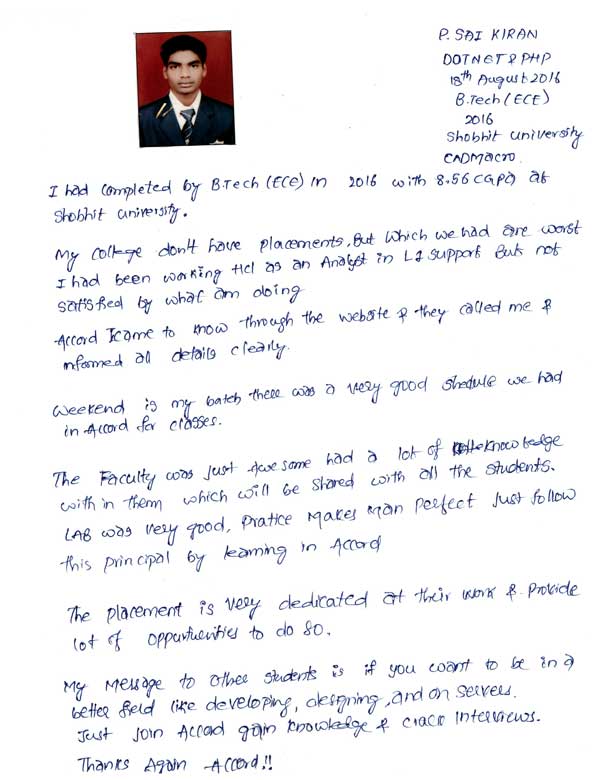 P. SAI KIRAN
DOTNET & PHP
18th August 2016
B.Tech (ECE)
2016
Shobhit University
CADMACRO.
I had completed by B.Tech (ECE) in 2016 with 8.56 CGPA at
Shobhit University.
My college don't have placements, But which we had are worst
I had been working Hcl as an Analyst in L1 support But not
satisfied by what am doing
Accord I came to know through the website & they called me &
informed all details clearly.
Weekend is my batch there was a very good shedule we had
in Accord for classes.
The Faculty was just Awesome had a lot of knowledge
with in them which will be shared with all the students.
LAB was very good, Pratice Makes Man Perfect Just follow
this principal by learning in Accord
The placement is very dedicated at their work & Provide
lot of oppurtuenities to do so.
My Message to other students is if you want to be in a
better field like developing, designing, and on servers.
Just Join Accord gain knowledge & crack Interviews.
Thanks Again Accord!!